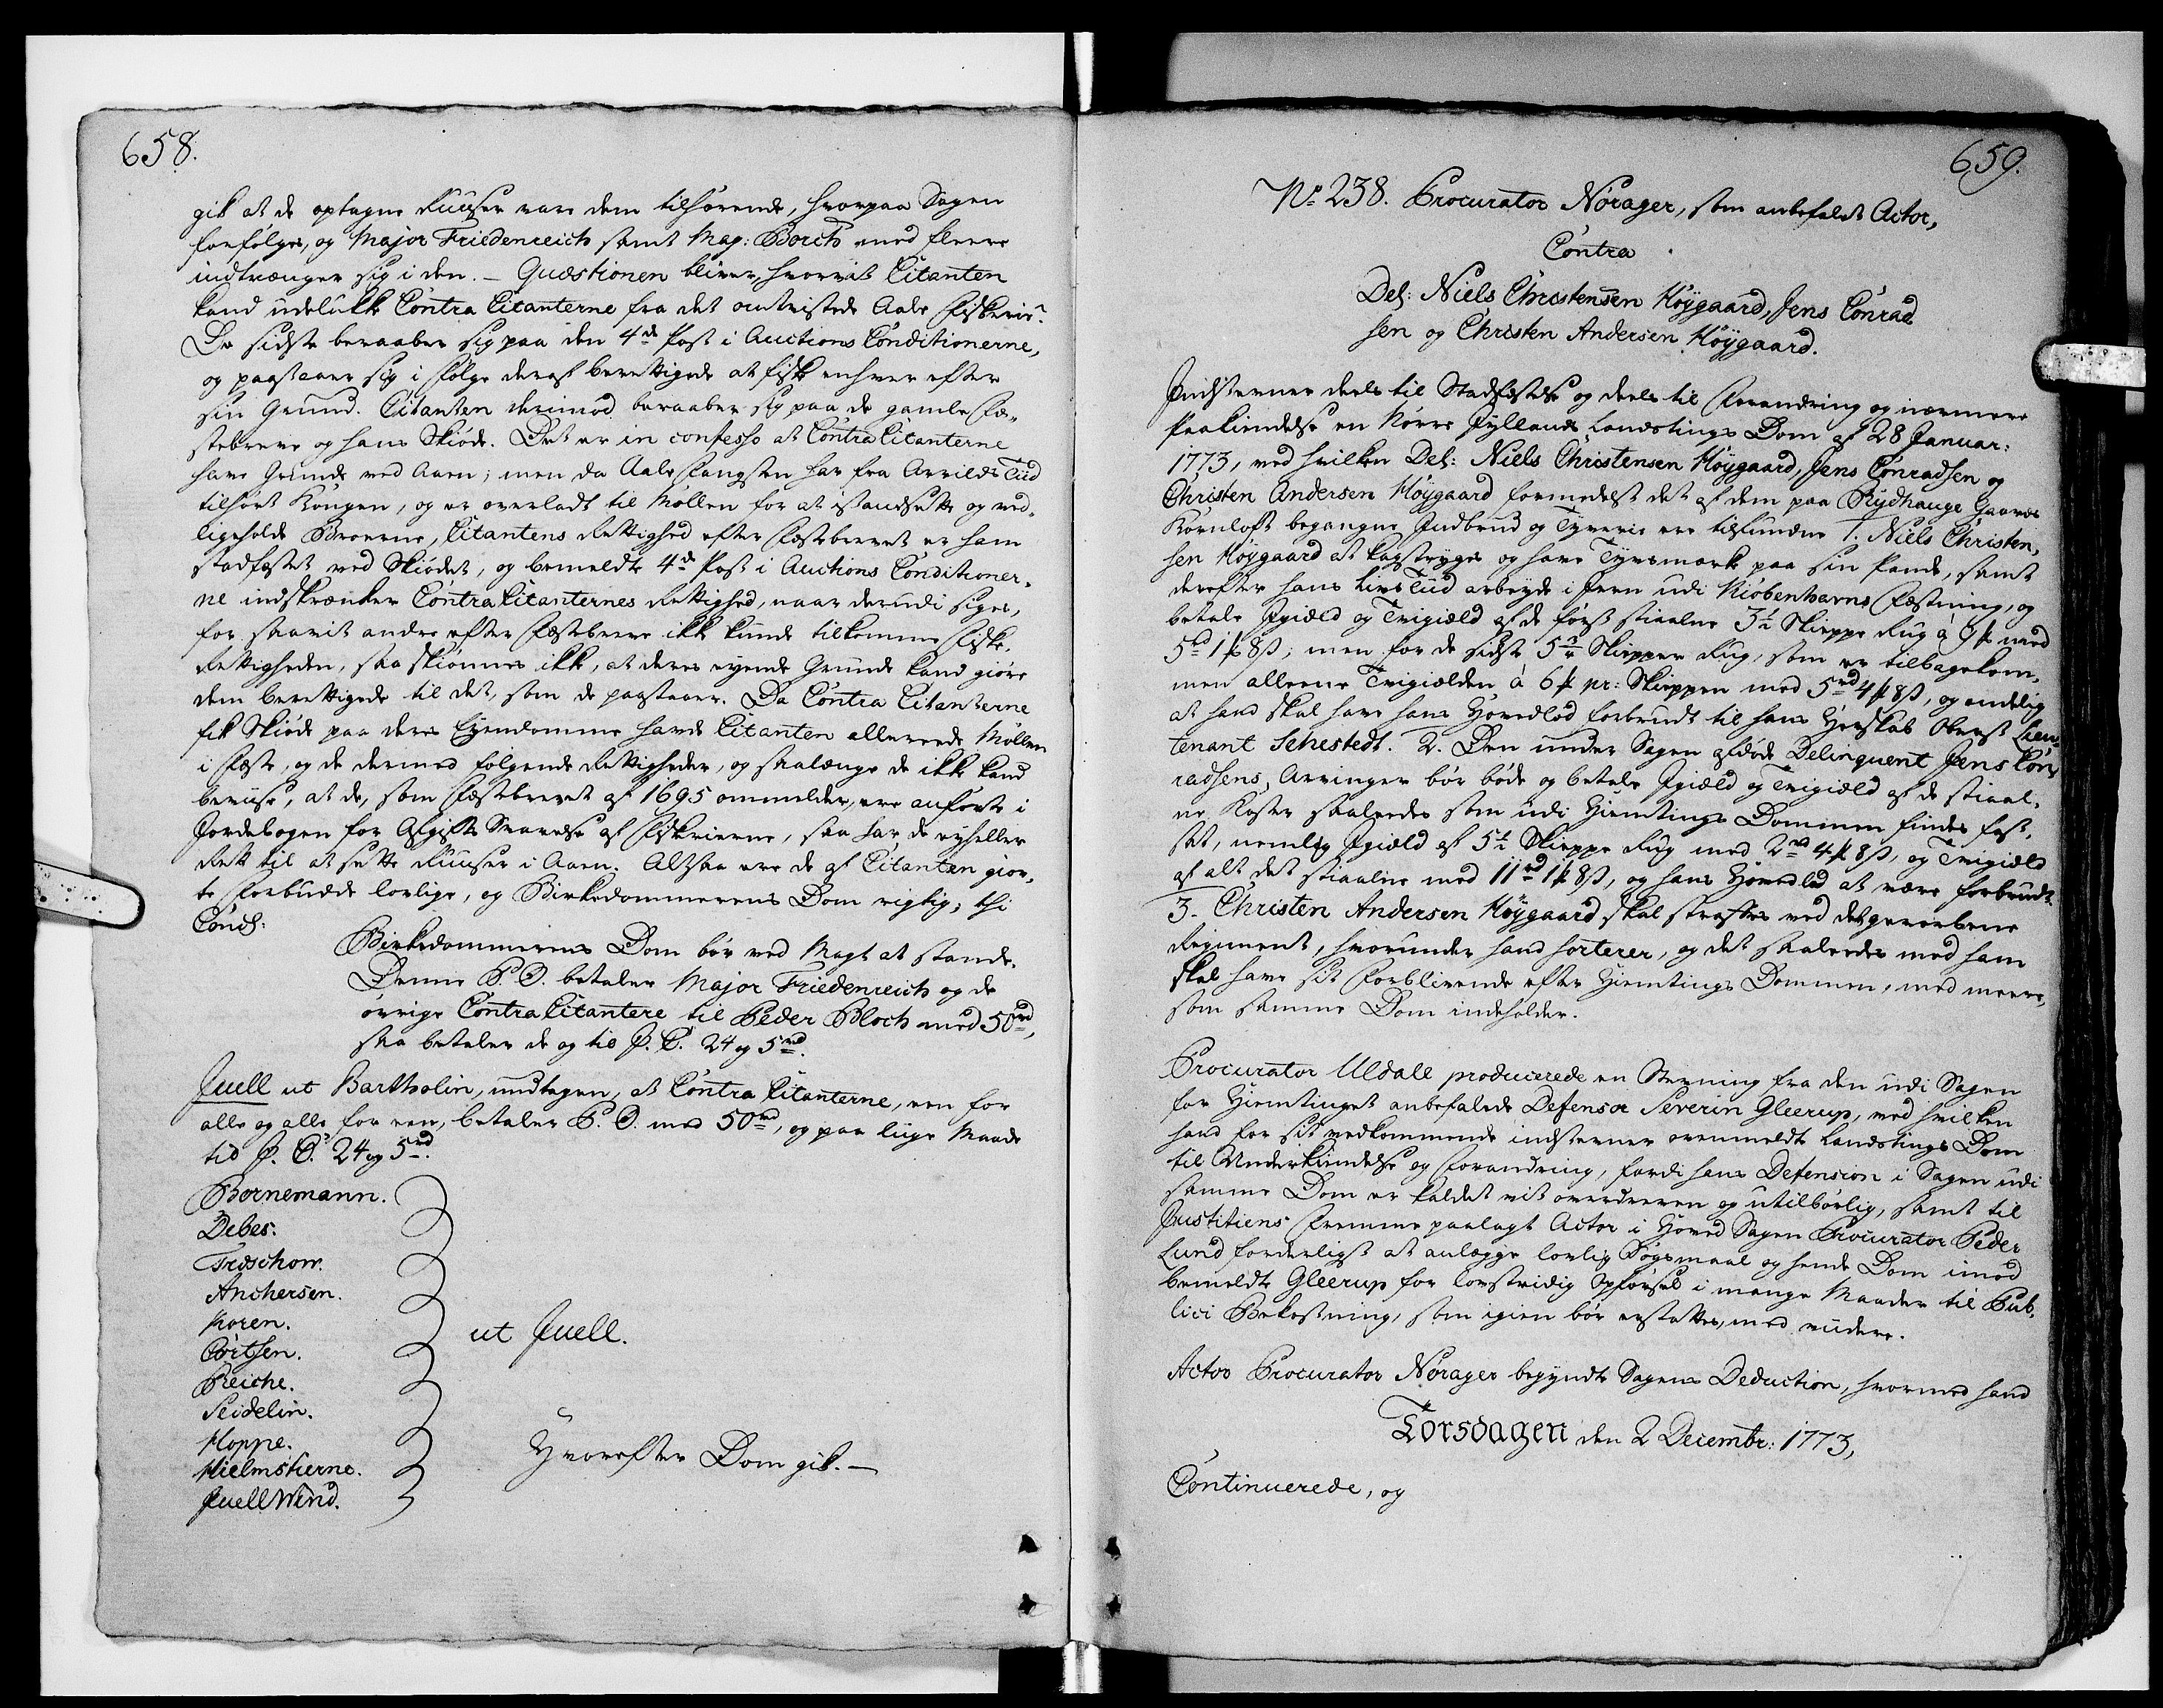 658.
gik at de optagne Ruuser vare dem tilhørende, hvorpaa Sagen
forfølges, og Major Friedenreich samt Mag: Borch med fleere
indtrænger sig i den. — Quæstionen bliver, hvorvit Citanten
kand udelukke Contra Citanterne fra det omtvistede Aale Fiskerie.
De sidste beraaber sig paa den 4de Post i Auctions Conditionerne,
og paastaaer sig i Følge deraf berettigede at fiske enhver efter
sin Grund. Citanten derimod beraaber sig paa de gamle Fæ-
stebreve og hans Skiøde. Det er in confesso at Contra Citanterne
have Grunde ved Aaen; men da Aale Fangsten har fra Arrilds Tiid
tilhørt Kongen, og er overladt til Møllen for at istandsette og ved-
ligeholde Broerne, Citantens Rettighed efter Fæstebrevet er ham
stadfæstet ved Skiødet, og bemeldte 4de Post i Auctions Conditioner-
ne indskrænker Contra Citanternes Rettighed, naar derudi siges,
for saavit andre efter Fæstebreve ikke kunde tilkomme Fiske-
Rettigheden, saa skiønnes ikke, at deres eyende Grunde kand giøre
dem berettigede til det, som de paastaaer. Da Contra Citanterne
fik Skiøde paa deres Eyendomme havde Citanten allereede Møllen
i Fæste, og de dermed følgende Rettigheder, og saalænge de ikke kand
beviise, at de, som Fæstebrevet af 1695 ommelder, ere anførte i
Jordebogen for Afgifts Svarelse af Fiskerierne, saa har de eyheller
Rett til at sette Ruuser i Aaen. Altsaa ere de af Citanten giør-
te Forbudde lovlige, og Birkedommerens Dom rigtig; thi
Concl:
Birkedommerens Dom bør ved Magt at stande.
Denne P. O. betaler Major Friedenreich og de
øvrige Contra Citantere til Peder Bloch med 50rd,
saa betaler de og til J. C. 24 og 5rd.
Juell ut Bartholin, undtagen, at Contra Citanterne, een for
alle og alle for een, betaler P. O. med 50rd, og paa liige Maade
til J. C. 24 og 5rd.
Bornemann.
Debes.
Treschow.
Anchersen.
Koren.
Cortsen.
ut Juell.
Reiche.
Seidelin.
Hoppe.
Hielmstierne.
Hvorefter Dom gik. —
Juell Wind.
659.
No 238. Procurator Nørager, som anbefalet Actor,
Contra
Del: Niels Christensen Høygaard, Jens Conrad
sen og Christen Andersen Høygaard.
Indstevner deels til Stadfæstelse og deels til Forandring og nærmere
Paakiendelse en Nørre Jyllands Landstings Dom af 28 Januar:
1773, ved hvilken Del: Niels Christensen Høygaard, Jens Conradsen og
Christen Andersen Høygaard formedelst det af dem paa Rydhauge Gaards
Kornloft begangne Indbrud og Tyverie ere tilfundne 1. Niels Christen-
sen Høygaard at kagstryges og have Tyvsmærke paa sin Pande, samt
derefter hans Livs Tiid arbeyde i Jern udi Kiøbenhavns Fæstning, og
betale Igield og Tvigield af de først stiaalne 3½ Skieppe Rug à 9 ₻ med
5rd 1 ₻ 8 ß; men for de sidste 5½ Skiepper Rug, som er tilbagekom-
men alleene Tvigielden, à 6 ₻ pr: Skieppen med 5rd 4 ₻ 8 ß, og endelig
at hand skal have hans Hovedlod forbrudt til hans Herskab Oberst Lieu-
tenant Sehestedt. 2. Den under Sagen afdøde Delinquent Jens Con-
radsens Arvinger bør bøde og betale Igield og Tvigield af de stiaal-
ne Koster saaleedes som udi Hiemtings Dommen findes fast-
sat, nemlig Igield af 5½ Skieppe Rug med 2rd 4 ₻ 8 ß, og Tvigield
af alt det stiaalne med 11rd 1 ₻ 8 ß, og hans Hovedlod at være forbrudt.
3. Christen Andersen Høygaard skal straffes ved det gevorbene
Regiment, hvorunder hand sorterer, og det saaleedes med ham
skal have sit Forblivende efter Hiemtings Dommen, med meere,
som samme Dom indeholder.
Procurator Uldall producerede en Stevning fra den udi Sagen
for Hiemtinget anbefalede Defensor Severin Gleerup, ved hvilken
hand for sit vedkommende indstevner ovenmeldte Landstings Dom
til Underkiendelse og Forandring, fordi hans Defension i Sagen udi
samme Dom er kaldet vit overdreven og utilbørlig, samt til
Justitiens Fremme paalagt Actor i Hoved Sagen Procurator Peder
Lund forderligst at anlægge lovlig Søgsmaal og hende Dom imod
bemeldte Gleerup for lovstridig Opførsel i mange Maader til Pub-
lici Bekostning, som igien bør erstattes, med viidere.
Actor Procurator Nørager begyndte Sagens Deduction, hvormed hand
Torsdagen den 2 Decembr: 1773,
Continuerede, og